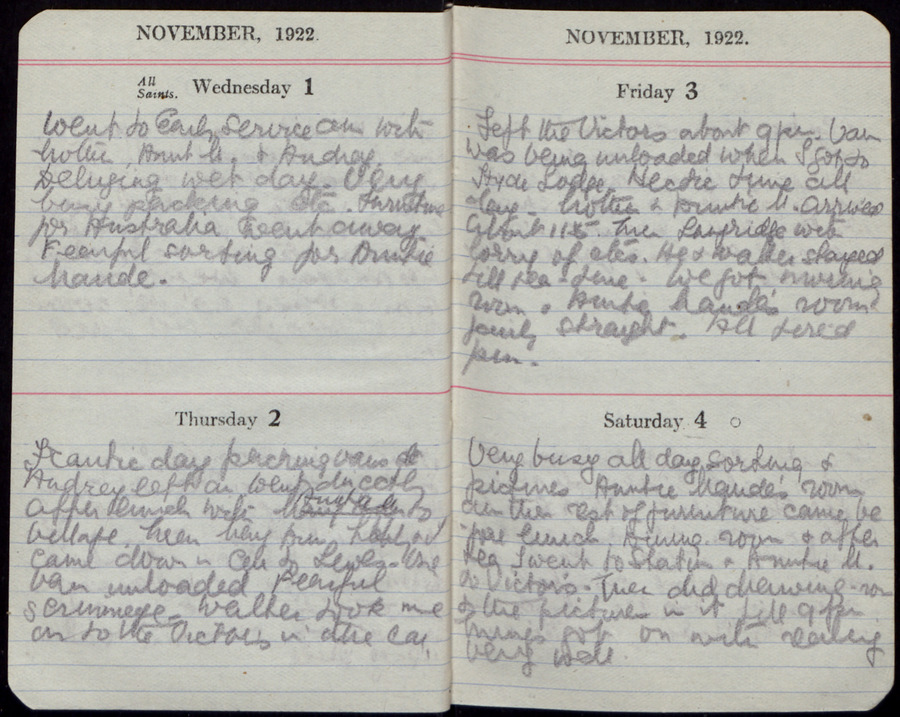 NOVEMBER, 1922.
All Saints. Wednesday 1
Went to Early Service with
Aunt M. & Audrey.
Deluging wet day. Very
busy packing etc. Furniture
for Australia went away
Fearful sorting for Auntie
Maude.
Thursday 2
Frantic day packing vans &
Audrey left directly
after lunch with to
village.
came down in car to One
van unloaded Fearful
scrimmage. Walter took me
on to the Victors in the car.
NOVEMBER, 1922.
Friday 3
Left the Victors about 9pm. Van
was being unloaded when I got to
Hyde Lodge. Hectic time all
day. & Auntie M. arrived
about 115. Then with
lorry of etcs. He & Walter stayed
till tea-time. We got
room & Auntie Maude's room
fairly straight. All tired
Saturday 4
Very busy all day sorting &
pictures Auntie Maude's room
then rest of furniture came be
fore lunch. Dining room & after
tea I went to Station & Auntie M.
to Victors. Then did drawing-room
& the pictures in it till 9pm
Things got on with really
very well.